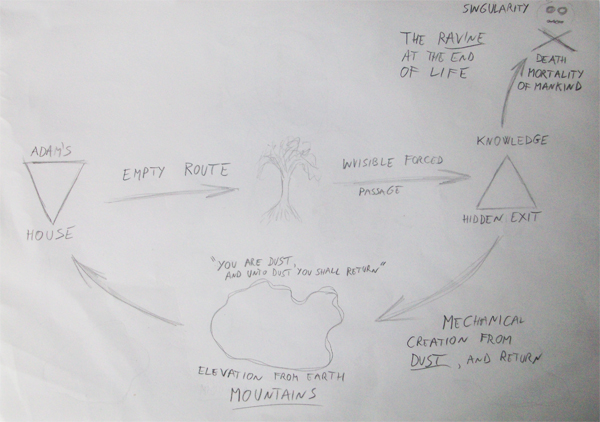 SINGULARITY
THE RAVINE
AT THE END
OF LIFE
DEATH
MORTALITY
OF MANKIND
ADAM'S
HOUSE
EMPTY ROUTE
INVISIBLE FORCED
PASSAGE
KNOWLEDGE
HIDDEN EXIT
"YOU ARE DUST,
AND UNTO DUST YOU SHALL RETURN"
ELEVATION FROM EARTH
MOUNTAINS
MECHANICAL
CREATION FROM
DUST, AND RETURN